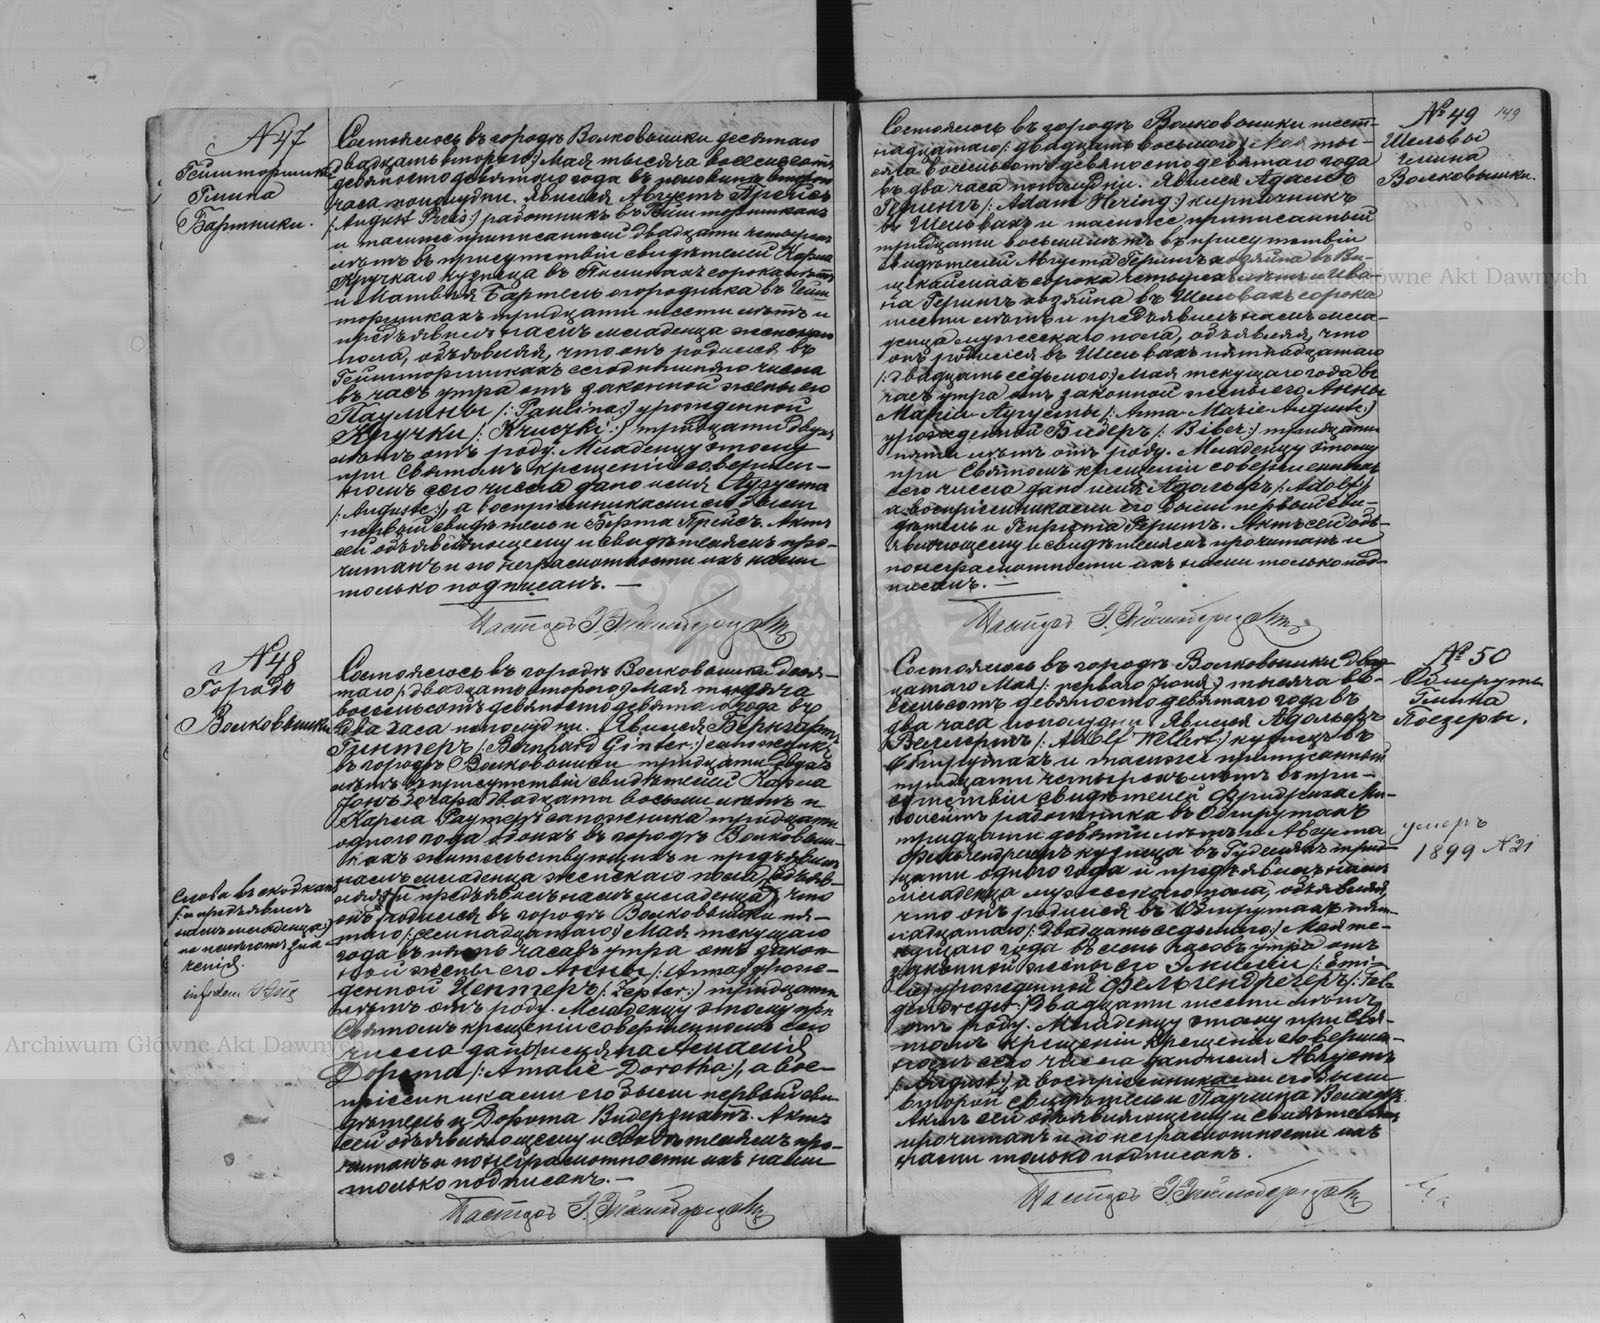 N 47
Гейшторишки
Гмина
Бартники.
Состоялось въ городѣ Волковышки десятаго
/двадцать втораго/ Мая тысяча восемьсотъ
девяносто девятаго года въ половинѣ втораго
часа пополудни. Явился Августъ Прейсъ
/: August Preis :/ работникъ въ Гейшторишкахъ
и тамже приписанный двадцати четырехъ
лѣтъ въ присутствіи свидѣтелей Карла
Кручкаго кузнеца въ сорока лѣтъ
и Матвѣя Бартель огородника въ Гейш-
торишкахъ тридцати шести лѣтъ и
предъявилъ намъ младенца женскаго
пола, объявляя, что онъ родился въ
Гейшторишкахъ сегодняшняго числа
въ часъ утра отъ законной жены его
Паулины /: Paulina :/ урожденной
Кручки /: Kruczki :/ тридцати двухъ
лѣтъ отъ роду. Младенцу этому
при Святомъ крещеніи совершен-
номъ сего числа дано имя Августа
/: Auguste :/, а воспріемниками его были
первый свидѣтель и Берта Прейсъ. Актъ
сей объявляющему и свидѣтелямъ про-
читанъ и по неграмотности ихъ нами
только подписанъ. —
Пасторъ
N 48
Городъ
Волковышки
Состоялось въ городѣ Волковышки деся-
таго /двадцать втораго/ Мая тысяча
восемьсотъ девяносто девятаго года въ
два часа пополудни. Явился Бернгардъ
Гинтеръ /: Bernhard Ginter :/ сапожникъ
въ городѣ Волковышки тридцати двухъ
лѣтъ въ присутствіи свидѣтелей Карла
двадцати восьми лѣтъ и
Карла Раутеръ сапожника тридцати
одного года обоихъ въ городѣ Волковыш-
кахъ жительствующихъ и предъявилъ
намъ младенца женскаго пола, объяв-
ляя /и предъявилъ намъ младенца/, что
онъ родился въ городѣ Волковышки пя-
таго /: семнадцатаго/ Мая текущаго
года въ пять часовъ утра отъ закон-
ной жены его Анны /: Anna :/ урож-
денной Цептеръ /: Zepter :/ тридцати
лѣтъ отъ роду. Младенцу этому при
Святомъ крещеніи совершенномъ сего
числа даны имена Амалія
Дорота /: Amalie-Dorotha :/, а вос-
пріемниками его были первый сви-
дѣтель и Дорота Видерзнатъ. Актъ
сей объявляющему и свидѣтелямъ про-
читанъ и по неграмотности ихъ нами
только подписанъ. —
Пасторъ
Слова въ скобкахъ
/: и предъявилъ
намъ младенца :/
не имѣютъ зна-
ченія.
N 49 149
Шельвы
Гмина
Волковышки.
Состоялось въ городѣ Волковышки шест-
надцатаго /: двадцать восьмаго/ Мая ты-
сяча восемьсотъ девяносто девятаго года
въ два часа пополудни. Явился Адамъ
Герингъ /: Adam Hering :/ кирпичникъ
въ Шельвахъ и тамже приписанный
тридцати восьми лѣтъ въ присутствіи
свидѣтелей Августа Герингъ хозяина въ
сорока четырехъ лѣтъ и Ива-
на Герингъ хозяина въ Шельвахъ сорока
шести лѣтъ и предъявилъ намъ мла-
денца мужескаго пола, объявляя, что
онъ родился въ Шельвахъ пятнадцатаго
/: двадцать седьмого/ Мая текущаго года въ
часъ утра отъ законной жены его Анны
Маріи-Августы /: Anna-Marie-Auguste :/
урожденной Биберъ /: Biber :/ тридцати
пяти лѣтъ отъ роду. Младенцу этому
при Святомъ крещеніи совершенномъ
сего числа дано имя Адольфъ /: Adolf :/
а воспріемниками его были первый сви-
дѣтель и Генріета Герингъ. Актъ сей объ-
являющему и свидѣтелямъ прочитанъ и
по неграмотности ихъ нами только под-
писанъ. —
Пасторъ
N 50
Обшруты
Гмина
Поезеры.
Состоялось въ городѣ Волковышки два-
дцатаго Мая /: перваго Іюня :/ тысяча во-
семьсотъ девяносто девятаго года въ
два часа пополудни. Явился Адольфъ
Веллертъ /: Adolf Wellert :/ кузнецъ въ
Обшрутахъ и тамже приписанный
тридцати четырехъ лѣтъ въ при-
сутствіи свидѣтелей Фридриха
работника въ Обшрутахъ
тридцати девяти лѣтъ и Августа
Фельгендрегеръ кузнеца въ трид-
цати одного года и предъявилъ намъ
младенца мужескаго пола, объявляя,
что онъ родился въ Обшрутахъ пят-
надцатаго /: двадцать седьмого/ Мая те-
кущаго года въ семь часовъ утра отъ
законной жены его Эмиліи /: Emi-
lie :/ урожденной Фельгендрегеръ /: Fel-
gendreger :/ двадцати шести лѣтъ
отъ роду. Младенцу этому при Свя-
томъ крещеніи крещеніи совершен-
номъ сего числа дано имя Августъ
/: August :/, а воспріемниками его были
второй свидѣтель и Паулина
Актъ сей объявляющему и свидѣтелямъ
прочитанъ и по неграмотности ихъ
нами только подписанъ.
Пасторъ
умеръ
1899 N 21
Archiwum Główne Akt Dawnych
Główne Akt Dawnych